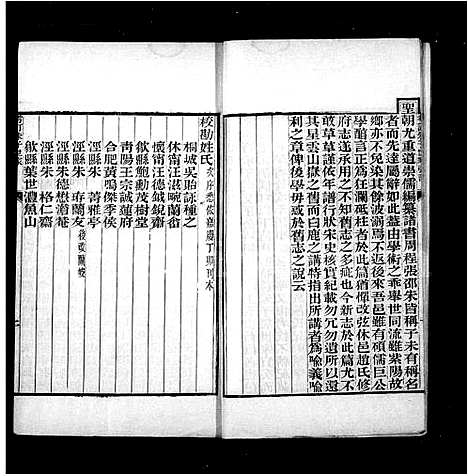 聖朝尤重道崇儒編纂諸書周程張邵朱皆稱子未有稱名
者而先達屬辭如此蓋由學術之乖舉世同流雖紫陽故
鄉亦不免染其餘波溺焉不返後來吾邑雖有碩儒巨公
學醇言正為狂瀾砥柱者於此篇猶憚改弦休邑趙氏修
府志遂承用之不知舊志之多疵也今新志於此篇尤不
敢草草謹依年譜行狀宋史核實紀載勿冗勿遺所以尊
其星雲山嶽之舊而白鹿之講特指出所講者為喻義喻
利之章俾後學毋或於舊志之說云
校勘姓氏
桐城吳貽詠種之
休甯汪湛畹蘭畬
懷甯汪德鉞銳齋
歙縣鮑勳茂樹堂
青陽王宗誠蓮府
合肥黃鳴傑季侯
涇縣朱 菁雅亭
涇縣朱 珔蘭友
涇縣朱德懋瀚庵
涇縣朱 格仁齋
歙縣葉世澧魚山